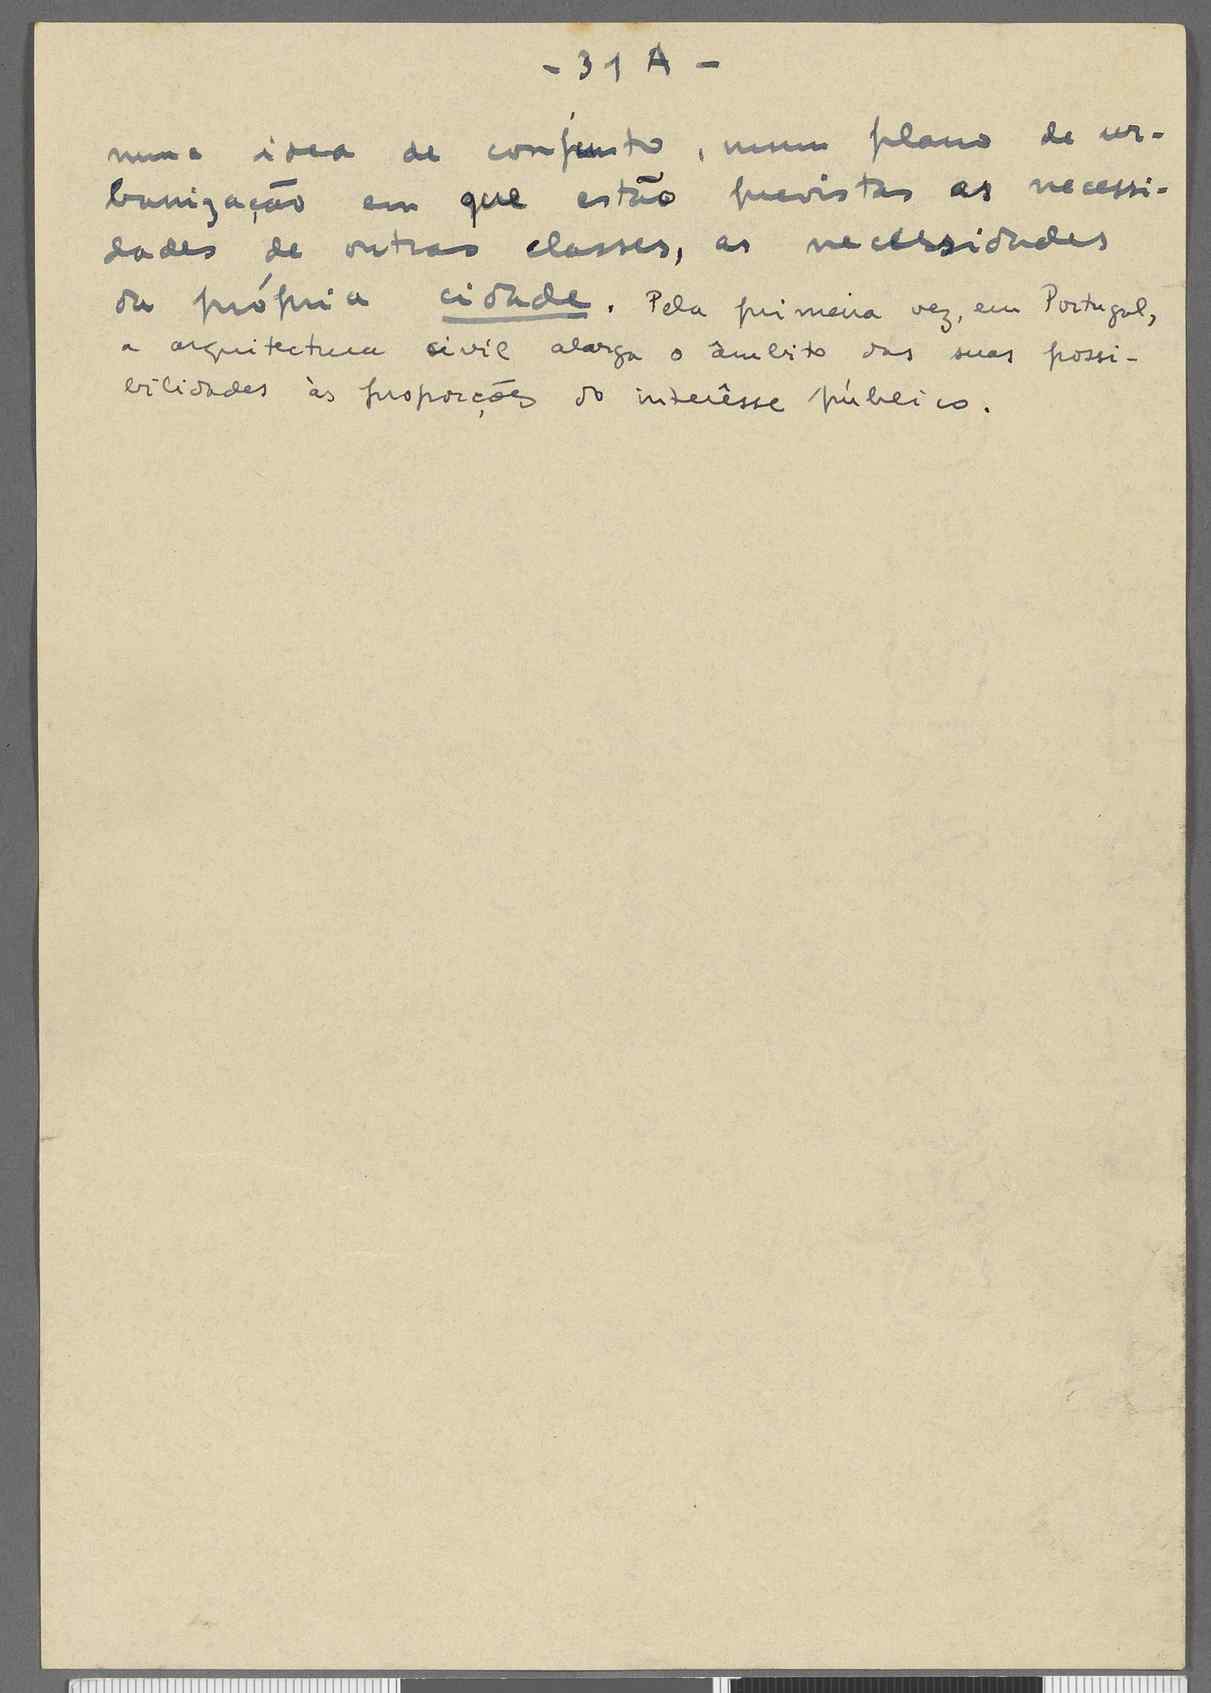 - 31 A -
numa idea de conjunto, num plano de ur-
banização em que estão previstas as necessi-
dades de outras classes, as necessidades
da própria cidade. Pela primeira vez, em Portugal,
a arquitectura civil alarga o âmbito das suas possi-
bilidades às proporções do interêsse público.